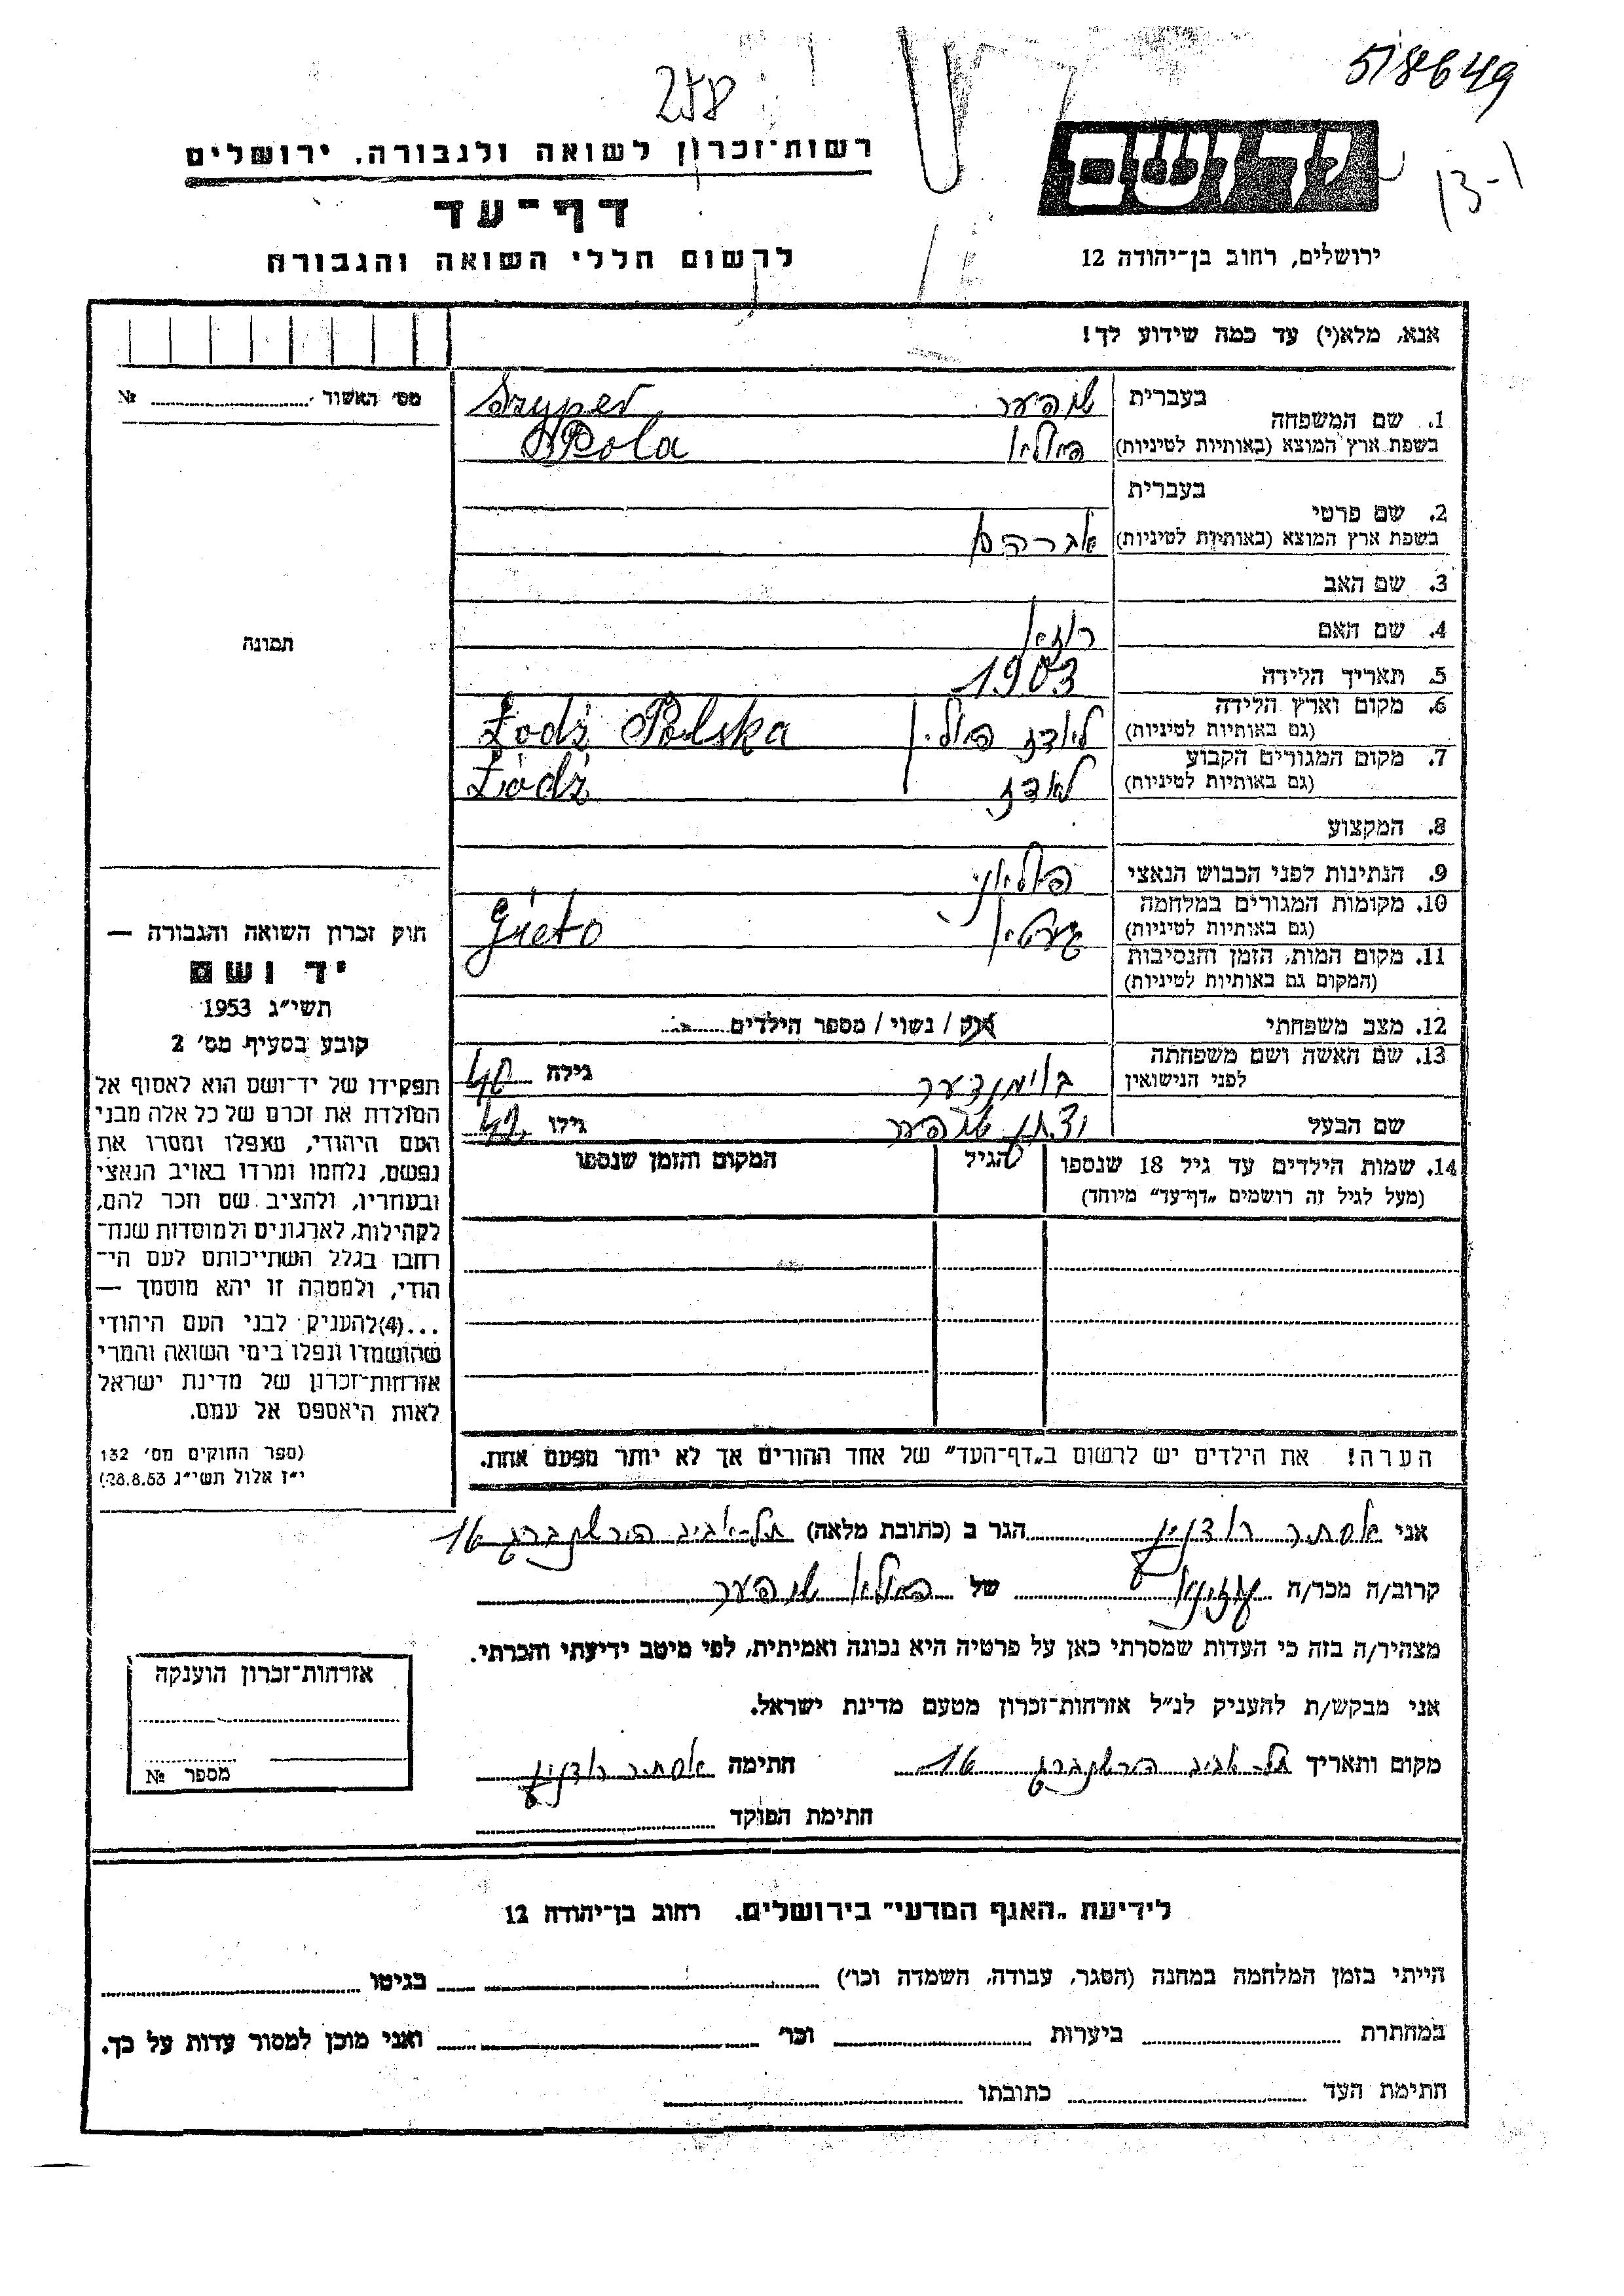 518649
258
רשות־זכרון לשואה ולגבורה. ירושלים
יד ושם
דף־עד
לרשום חללי השואה והגבורה
ירושלים, רחוב בן־יהודה 12
אנא, מלא(י) עד כמה שידוע לך!
מס׳ האשור № 
בעברית שפּער Szyper
1. שם המשפחה
בשפת ארץ המוצא (באותיות לטיניות) פולא Pola
בעברית
2. שם פרטי
בשפת ארץ המוצא (באותיות לטיניות) אברהם
3. שם האב
4. שם האם רוזא
5. תאריך הלידה 1903
6. מקום וארץ הלידה
(גם באותיות לטיניות) לודז פולין Łodź Polska
7. מקום המגורים הקבוע
(גם באותיות לטיניות) לודז Łodź
8. המקצוע
9. הנתינות לפני הכבוש הנאצי פולאני
10. מקומות המגורים במלחמה
(גם באותיות לטיניות) געטא Gieto
11. מקום המות, הזמן והנסיבות
(המקום גם באותיות לטיניות)
12. מצב משפחתי רוק / נשוי / מספר הילדים
13. שם האשה ושם משפחתה
לפני הנישואין גילה 40
שם הבעל גילו
14. שמות הילדים עד גיל 18 שנספו
(מעל לגיל זה רושמים „דף־עד” מיוחד)
הגיל
המקום והזמן שנספו
תמונה
חוק זכרון השואה והגבורה —
יד ושם
תשי״ג 1953
קובע בסעיף מס׳ 2
תפקידו של יד־ושם הוא לאסוף אל
המולדת את זכרם של כל אלה מבני
העם היהודי, שנפלו ומסרו את
נפשם, נלחמו ומרדו באויב הנאצי
ובעוזריו, ולהציב שם וזכר להם,
לקהילות, לארגונים ולמוסדות שנח־
רבו בגלל השתייכותם לעם הי־
הודי, ולמטרה זו יהא מוסמך —
...(4)להעניק לבני העם היהודי
שהושמדו ונפלו בימי השואה והמרי
אזרחות־זכרון של מדינת ישראל
לאות היאספם אל עמם.
(ספר החוקים מס׳ 132
י״ז אלול תשי״ג 28.8.53)
הערה! את הילדים יש לרשום ב„דף־העד” של אחד ההורים אך לא יותר מפעם אחת.
אני אסתר הגר ב (כתובת מלאה) תל-אביב הירשנברג 16
קרוב/ה מכר/ה של פולא שפּער
מצהיר/ה בזה כי העדות שמסרתי כאן על פרטיה היא נכונה ואמיתית, לפי מיטב ידיעתי והכרתי.
אני מבקש/ת להעניק לנ״ל אזרחות־זכרון מטעם מדינת ישראל.
מקום ותאריך תל-אביב הירשנברג 16 חתימה אסתר
חתימת הפוקד
אזרחות־זכרון הוענקה
מספר №
לידיעת „האגף המדעי” בירושלים. רחוב בן־יהודה 12
הייתי בזמן המלחמה במחנה (הסגר, עבודה, השמדה וכו׳) בגיטו
במחתרת ביערות וכו׳ ואני מוכן למסור עדות על כך.
חתימת העד כתובתו